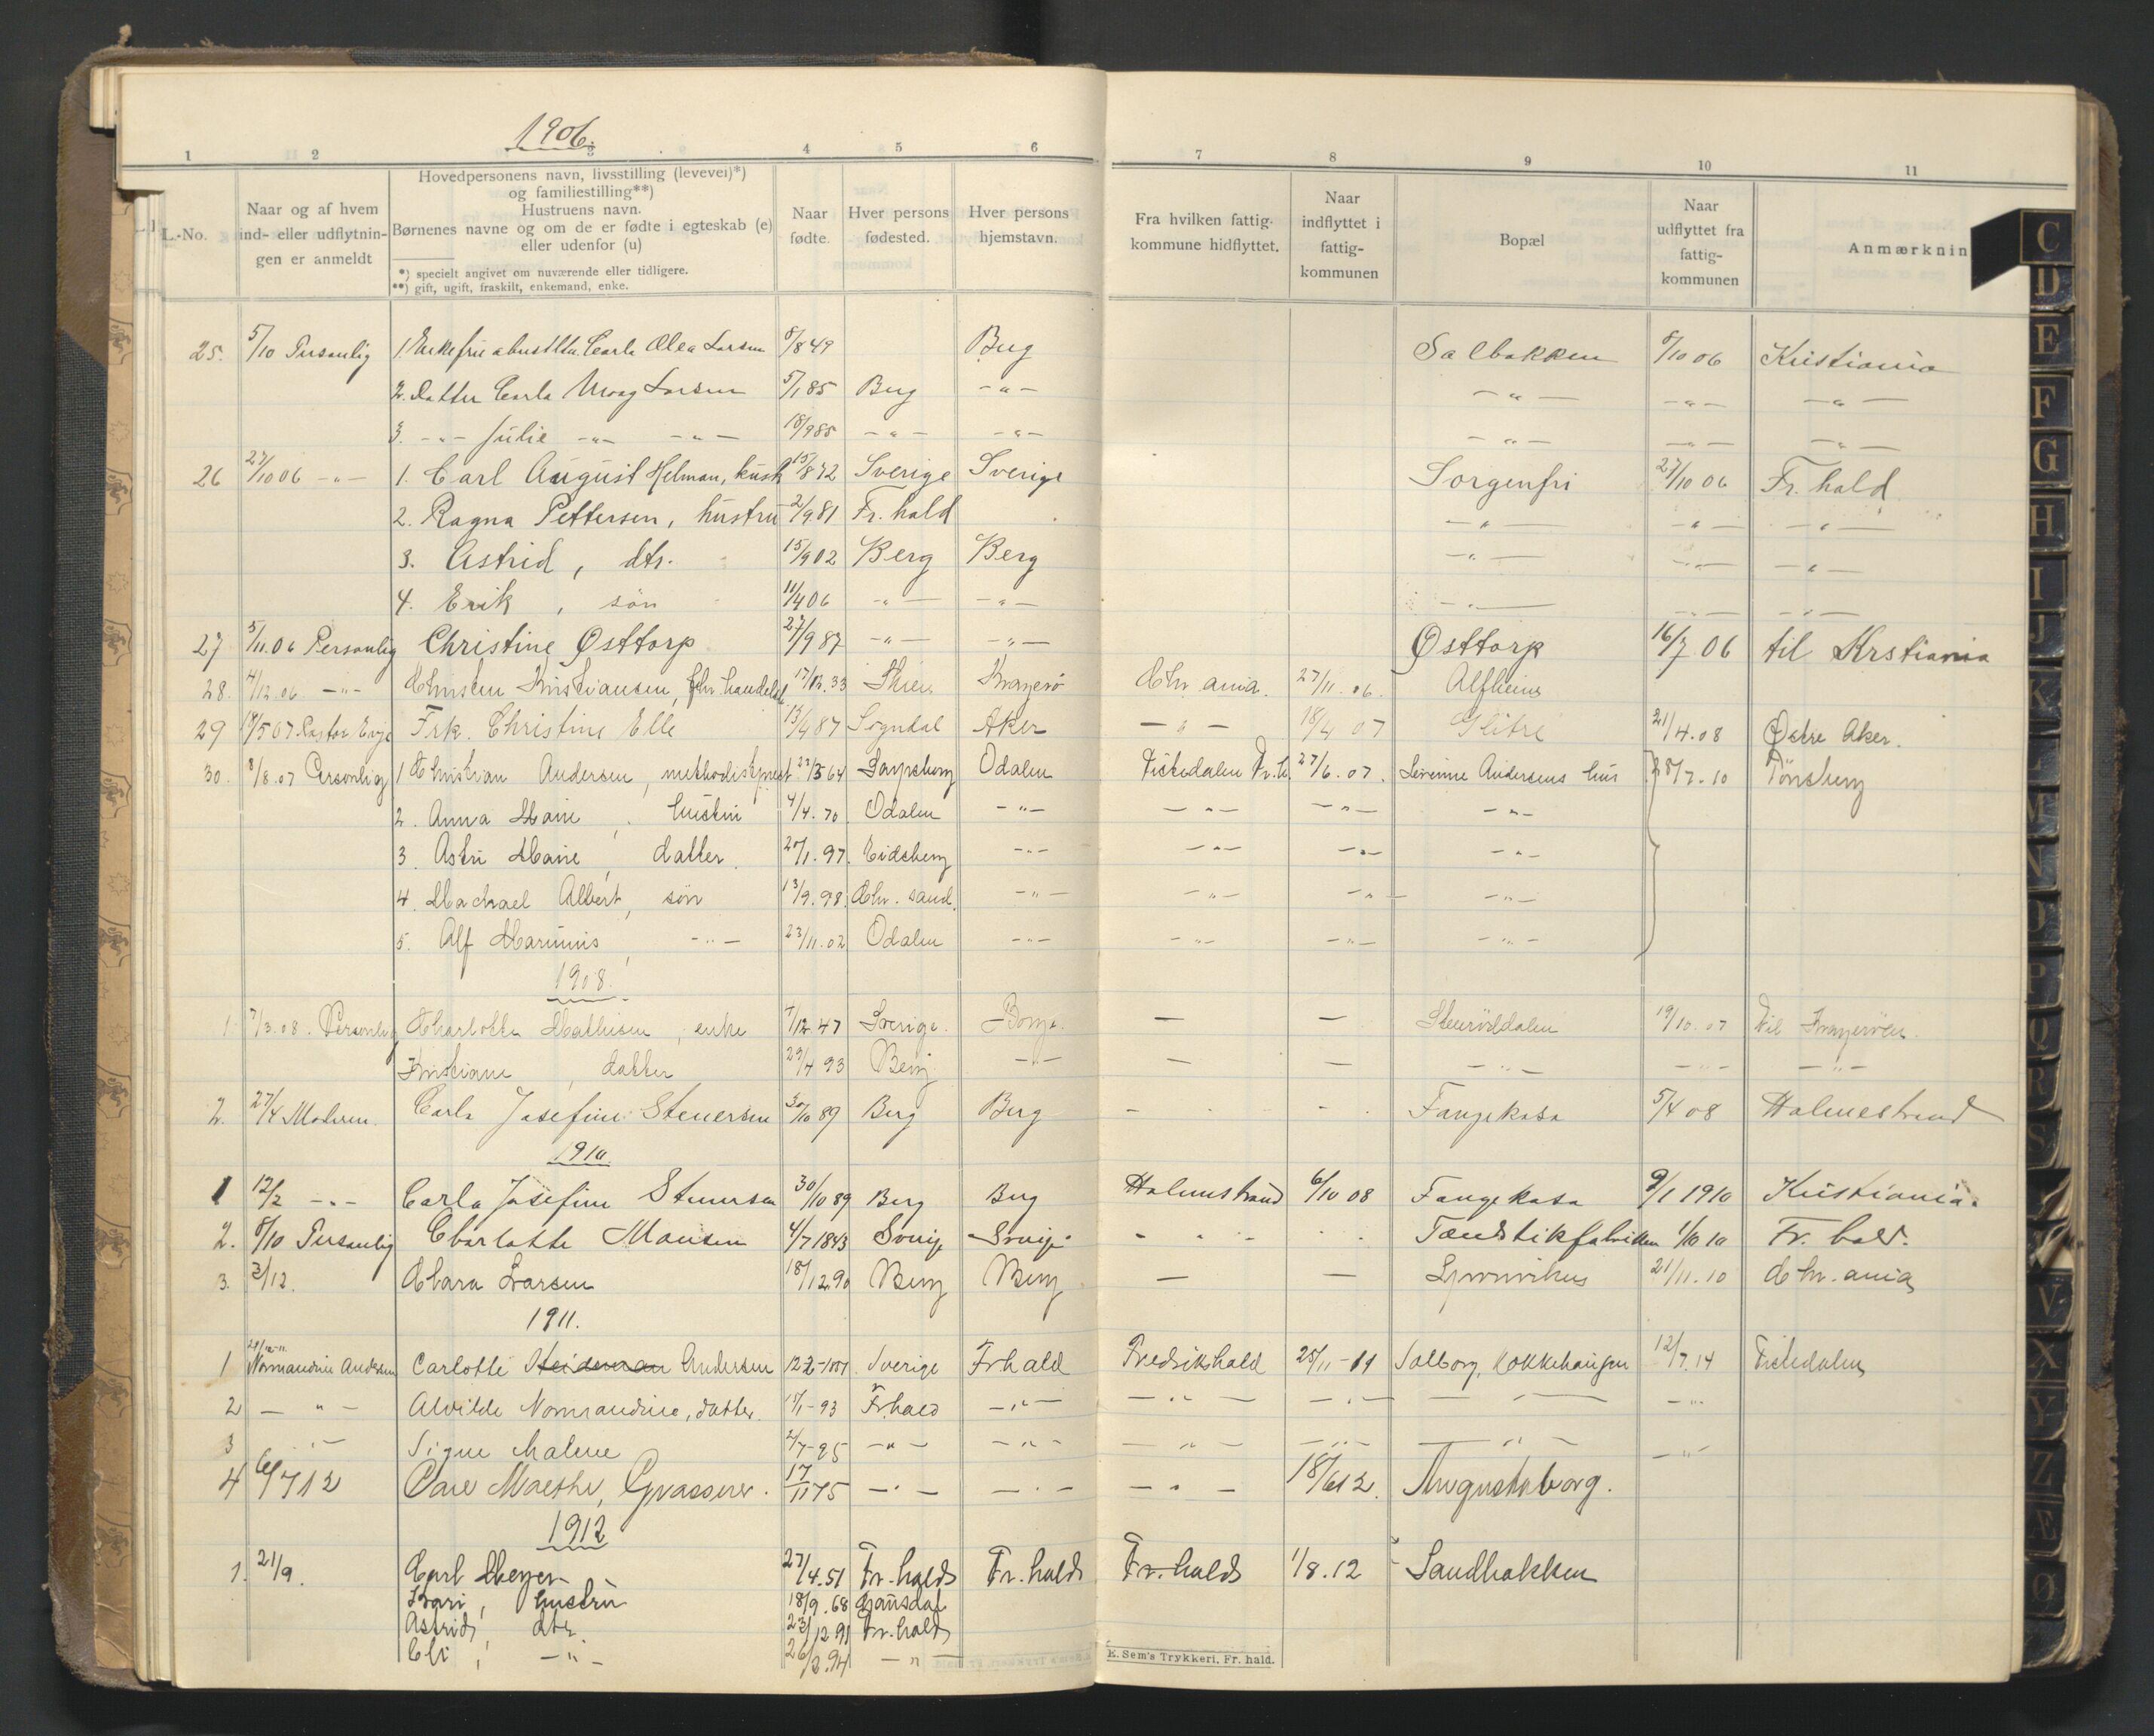 1906.
1 2 3 4 5 6 7 8 9 10 11
L.-No.
Naar og af hvem ind- eller udflytnin- gen er anmeldt
Hovedpersonens navn, livsstilling (levevei)*)
og familiestilling**)
Hustruens navn.
Børnenes navne og om de er fødte i egteskab (e)
eller udenfor (u)
*) specielt angivet om nuværende eller tidligere.
**) gift, ugift, fraskilt, enkemand, enke.
Naar fødte.
Hver persons fødested.
Hver persons hjemstavn.
Fra hvilken fattig- kommune hidflyttet.
Naar indflyttet i fattig- kommunen
Bopæl
Naar udflyttet fra fattig- kommunen
Anmærknin
25. 5/10 Personlig 1. Carla Olea Larsen 8/8 49 Berg 5/10 06 Kristiania
2. Datter Carla Larsen 5/1 85 Berg -"- -"- -"- -"-
3. -"- Julie -"- -"- 18/9 85 -"- -"- -"- -"- -"-
26 27/10 06 -"- 1. Carl August Helman, kusk 15/8 72 Sverige Sverige Sorgenfri 27/10 06 Fr. hald
2. Ragna Pettersen, hustru 2/9 81 Fr. hald -"- -"- -"-
3. Astrid, dtr. 15/9 02 Berg Berg -"- -"- -"-
4. Erik, søn 11/4 06 -"- -"- -"- -"- -"-
27 5/11.06 Personlig Christine Østtorp 27/9 87 -"- -"- Østtorp 16/7 06 til Krstiania
28. 4/12.06 -"- Christen Kristiansen, 17/12.33 Skien Kragerø Chr.ania. 27/11.06. Alfheim
29 18/5 07 Pastor Evje Frk. Christine Elle 13/4 87 Sogndal Aker -"- 18/4 07 Glitre 21/4.08 Østre Aker.
30. 8/8.07 Personlig 1 Christian Andersen, methodistprest 23/5 64 Sarpsborg Odalen Tistedalen Fr.h. 27/6.07. Severine Andersens hus 28/7.10 Tönsberg
2. Anna Marie, hustru 4/4.70 Odalen -"- -"- -"- -"-
3 Astri Marie, datter 20/1.97. Eidsberg -"- -"- -"- -"-
4. Machael Albert, søn 13/9.98. Chr. sand. -"- -"- -"- -"-
5. Alf Marinius, -"- 23/11.02 Odalen -"- -"- -"- -"-
1908.
1. 7/3.08. Personlig Charlotte Mathisen, enke 4/12 47 Sverige. Borge. — — Stenrödalen 19/10.07 til Kragerøen.
Kristiane, datter 29/4 93 Berg -"- — — -"- -"- -"-
2. 27/4 Moderen. Carla Josefine Stenersen 30/10 89 Berg Berg - - Fangekasa 5/4 08 Holmestrand
1910.
1 12/2 -"- Carla Josefine Stenersen 30/10 89 Berg Berg Holmestrand 6/10 08 Fangekasa 9/1 1910 Kristiania.
2. 8/10 Personlig Charlotte Monsen 4/7 1843 Sverige Sverige - " - Tændstikfabriken 1/10 10 Fr. hald.
3. 3/12. Clara Larsen 18/12 90 Berg Berg — — 21/11.10 Chr.ania
1911.
1 Normandine Andersen Carlotte Heideman Andersen Sverige Frhald Fredrikshald 25/11-11 Solborg, Kokkehaugen 12/7.14 Tistedalen
2 -"- Alvilde Normandine, datter. 15/1-93 Fr.hald -"- -"- -"- -"- -"-
3 -"- Signe Malene 2/7-95 -"- -"- -"- -"- -"- -"-
4 6/7 12 17/11 75 -"- -"- -"- 18/6 12. Augustaborg.
1912
1. 21/9. Carl Meyer 27/4.51 Fr. hald Fr. hald Fr. hald 1/8.12 Sandbakken
Kari, hustru 18/9.68
Astrid, dtr. 23/12 91 Fr. hald
Eli, -"- 26/2.94 -"-
E. Sem's Trykkeri, Fr. hald.
C
D
E
F
G
H
I
J
K
L
M
N
O
P
Q
R
S
V
X
Y
Z
Æ
Ø